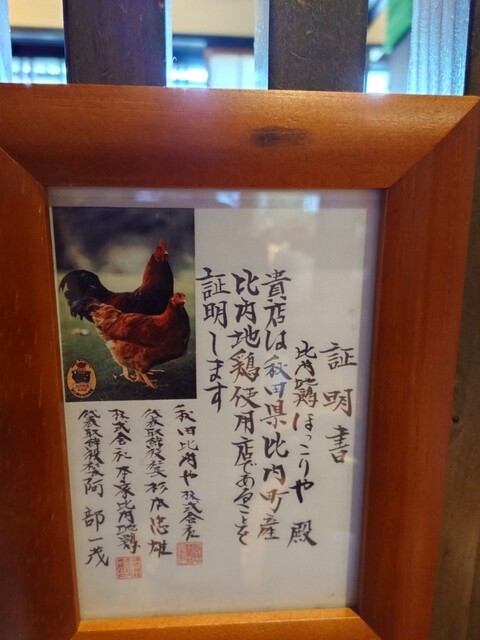 証明書
比内地鶏ほっこりや 殿
貴店は秋田県比内町産
比内地鶏使用店であることを
証明します
秋田比内や株式会社
代表取締役 杉本忠雄
株式会社本家比内地鶏
代表取締役 阿部一茂